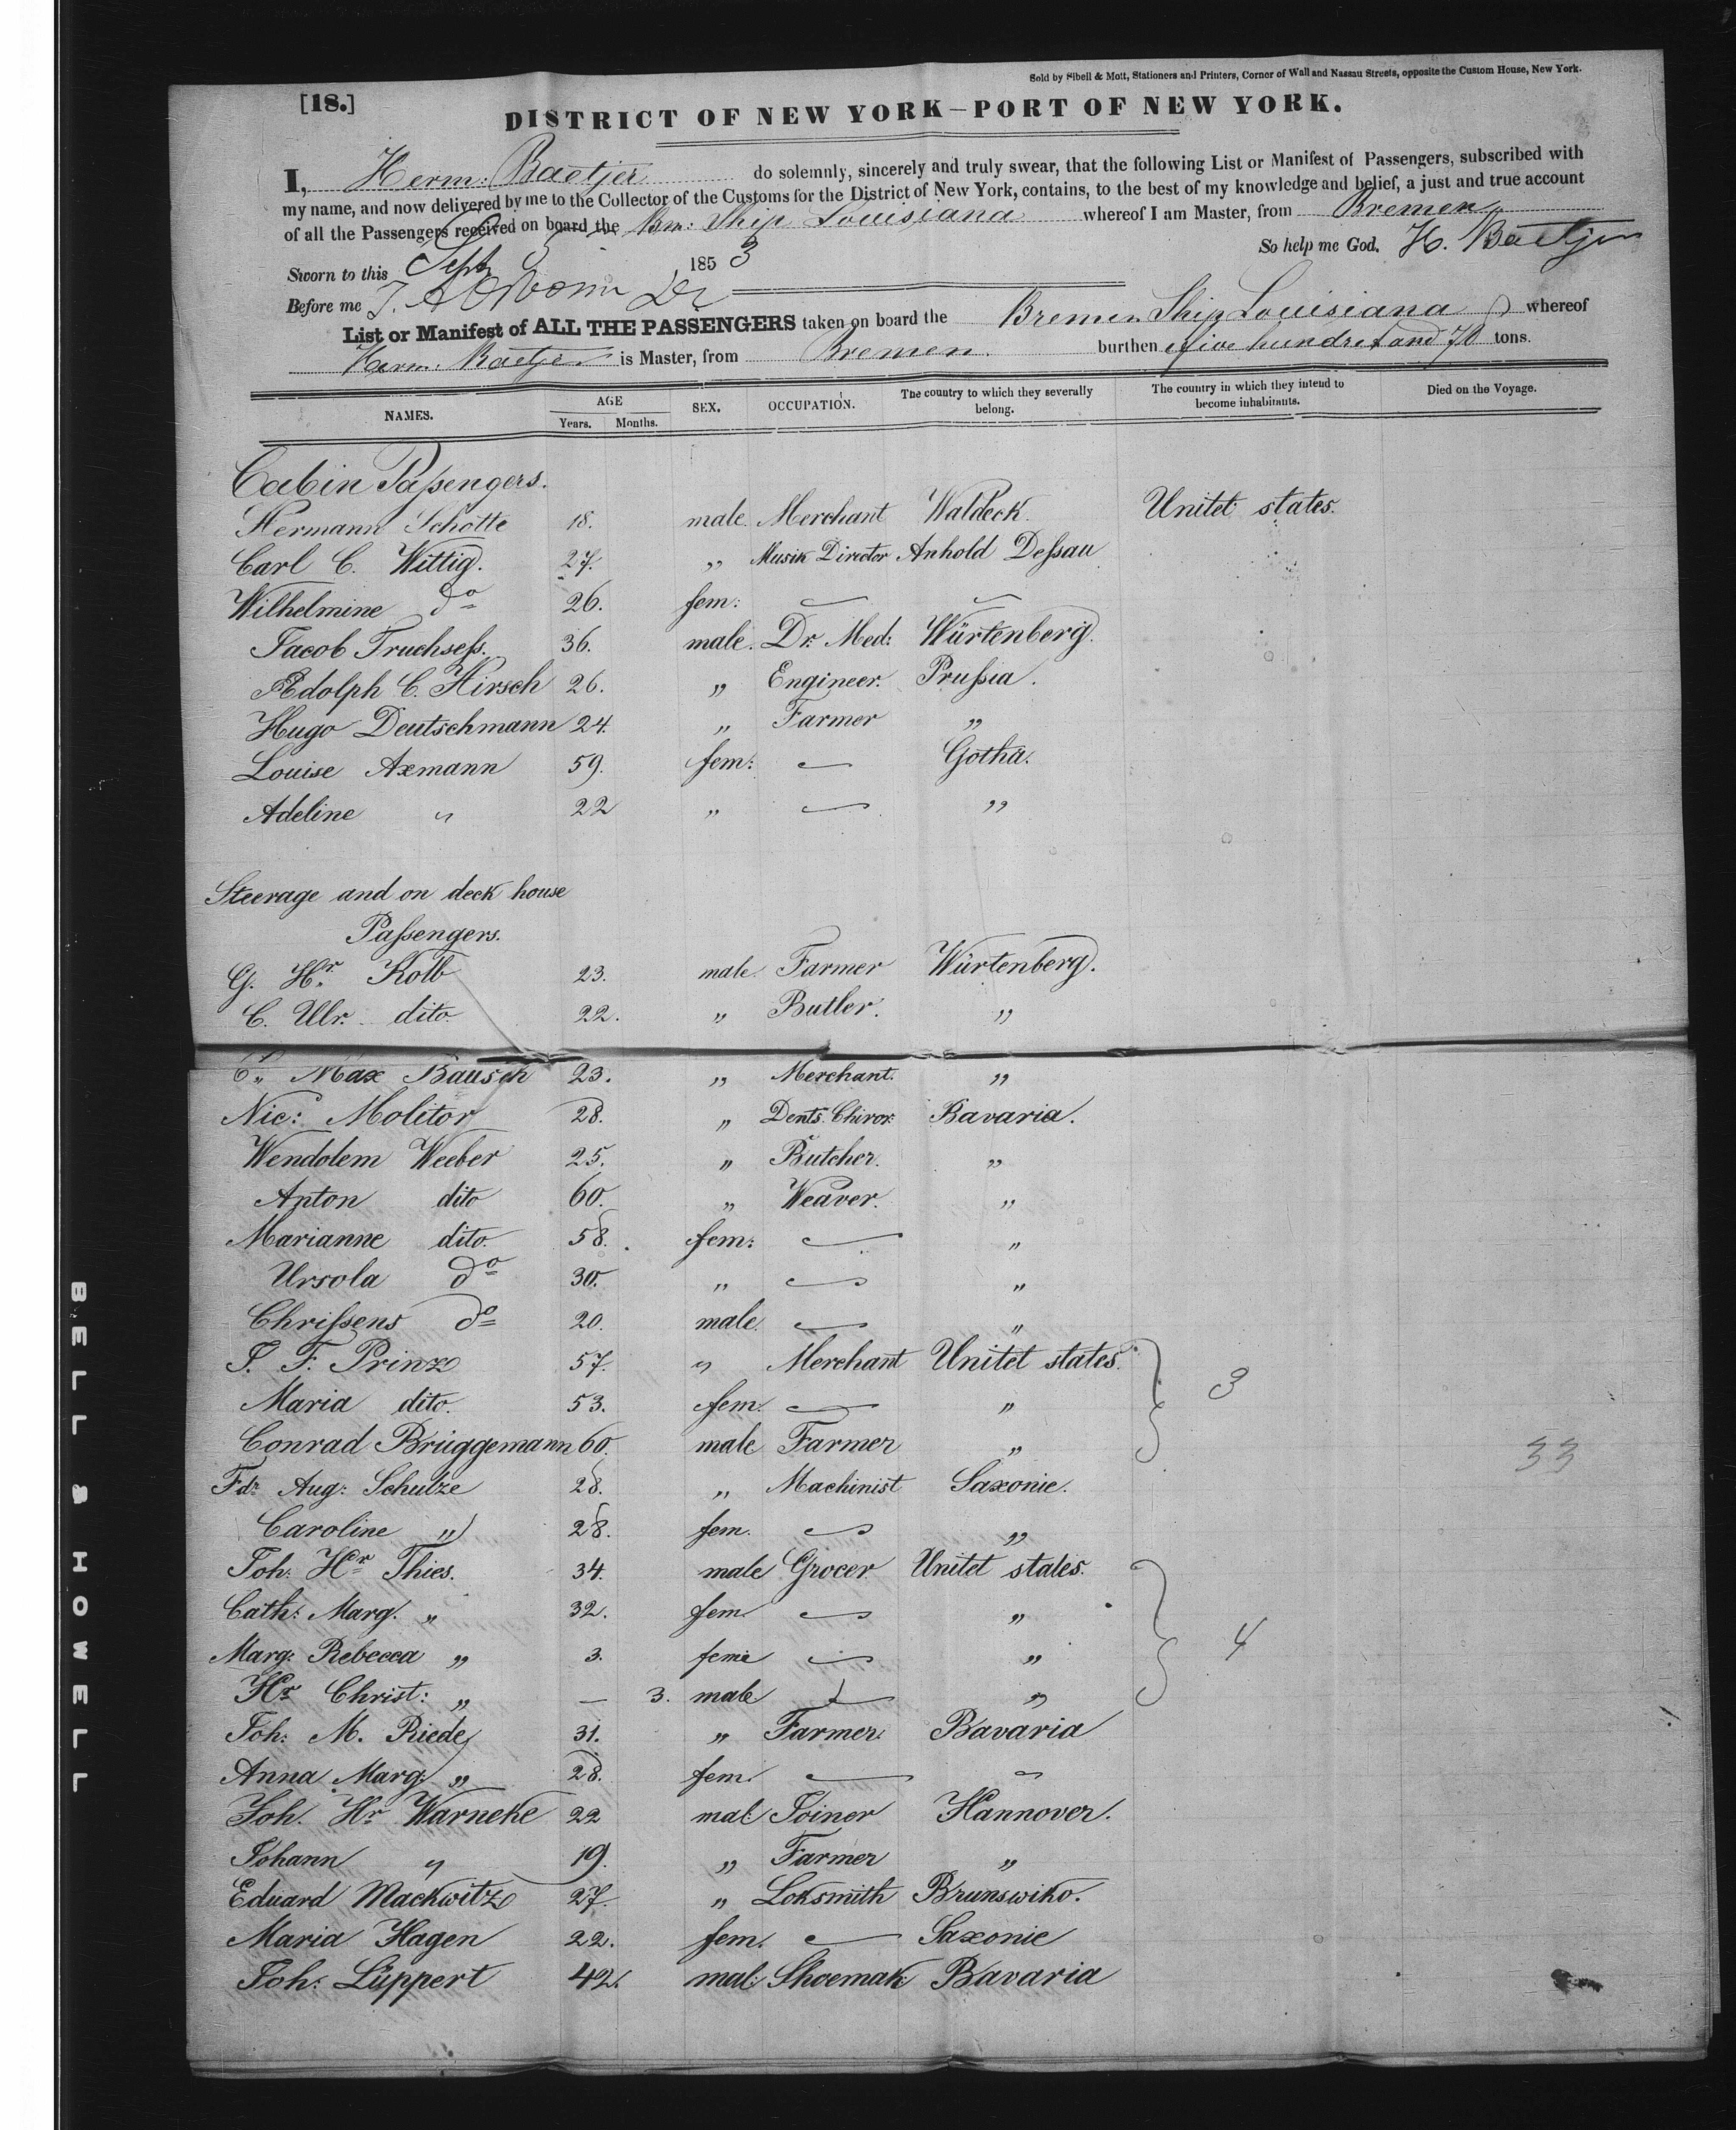 Sold by Sibell & Mott, Stationers and Printers, Corner of Wall and Nassau Streets, opposite the Custom House, New York.
[18.]
DISTRICT OF NEW YORK—PORT OF NEW YORK.
I, Herm: Baetjer do solemnly, sincerely and truly swear, that the following List or Manifest of Passengers, subscribed with
my name, and now delivered by me to the Collector of the Customs for the District of New York, contains, to the best of my knowledge and belief, a just and true account
of all the Passengers received on board the Brm: Ship Louisiana whereof I am Master, from Bremen
So help me God. H. Baetjer
Sworn to this Sept 5 1853
Before me
List or Manifest of ALL THE PASSENGERS taken on board the Bremen Ship Louisiana whereof
Herm: Baetjer is Master, from Bremen. burthen five hundret and 70 tons.
NAMES. AGE Years. Months. SEX. OCCUPATION. The country to which they severally belong. The country in which they intend to become inhabitants. Died on the Voyage.
Cabin Passengers.
Hermann Schotte 18. male. Merchant Waldeck. Unitet states.
Carl C. Wittig. 27. " Musik Director Anhold Dessau
Wilhelmine do 26. fem: — —
Jacob Truchsess. 36. male. Dr. Med: Würtenberg.
Adolph C. Hirsch 26. " Engineer. Prussia.
Hugo Deutschmann 24. " Farmer "
Louise Axmann 59. fem: — Gotha.
Adeline " 22 " — "
Steerage and on deck house
Passengers.
G. Hr. Kolb 23. male. Farmer Würtenberg.
C. Ulr. dito. 22. " Butler. "
C. Max Bausch 23. " Merchant. "
Nic: Molitor 28. " Dents. Chiror: Bavaria.
Wendolem Weeber 25. " Butcher. "
Anton dito 60. " Weaver. "
Marianne dito. 58. fem: — "
Ursola do 30. " — "
Chrissens do 20. male. — "
J. F. Prinz 57. " Merchant Unitet states.
Maria dito. 53. fem. — " 3
Conrad Brüggemann 60. male Farmer "
33
Fdr. Aug: Schulze 28. " Machinist Saxonie.
Caroline " 28. fem. — "
Joh: Hr Thies. 34. male Grocer Unitet states.
Cath: Marg. " 32. fem. — "
Marg: Rebecca " 3. feme — " 4
Hr Christ: " — 3. male — "
Joh: M. Riede 31. " Farmer Bavaria
Anna Marg: " 28. fem. — "
Joh. Hr Warneke 22 mal: Joiner Hannover.
Johann " 19. " Farmer "
Eduard Mackwitz 27. " Loksmith Brunswiko.
Maria Hagen 22. fem. — Saxonie
Joh: Lüppert 42. mal: Shoemak: Bavaria
BELL & HOWELL